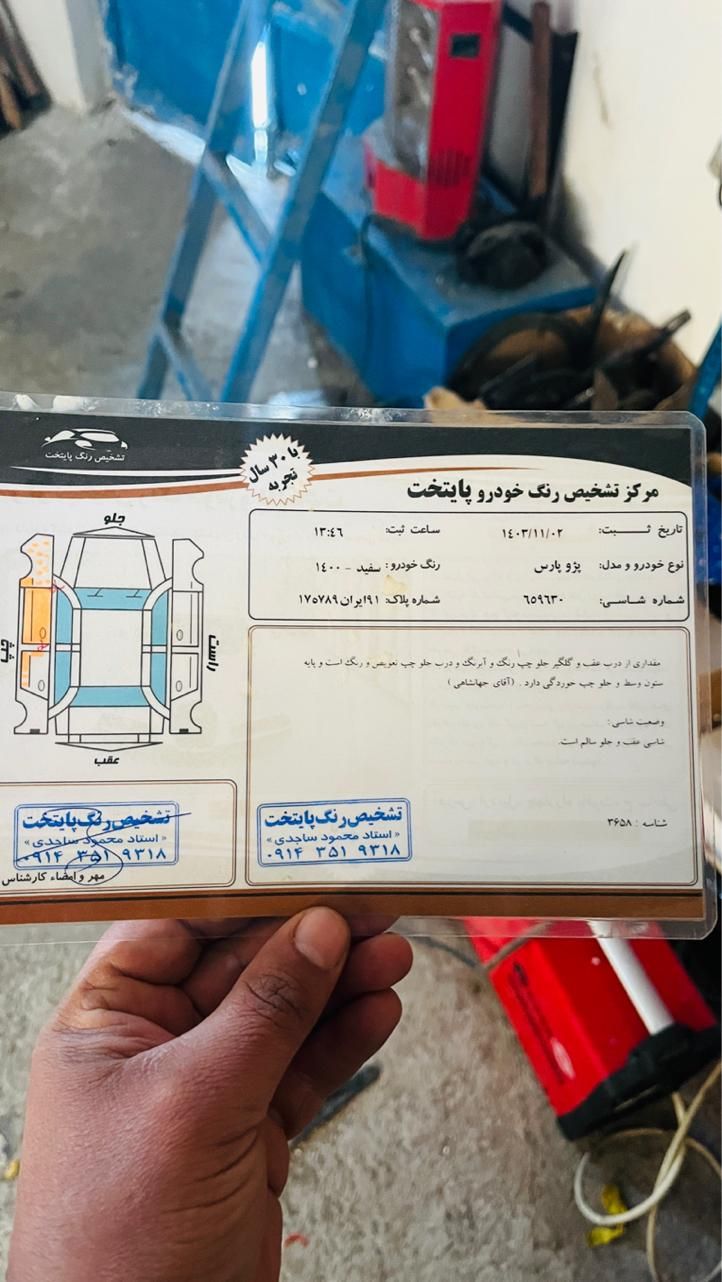 تشخیص رنگ پایتخت
با ۳۰ سال
تجربه
مرکز تشخیص رنگ خودرو پایتخت
تاریخ ثبت: ۱٤۰۳/۱۱/۰۲ ساعت ثبت: ۱۳:٤٦
نوع خودرو و مدل: پژو پارس رنگ خودرو: سفید - ۱٤۰۰
شماره شاسی: ٦۵۹٦۳۰ شماره پلاک: ۹۱ایران۱۷۵۷۸۹
جلو
راست
چپ
عقب
مقداری از درب عقب و گلگیر جلو چپ رنگ و آبرنگ و درب جلو چپ تعویض و رنگ است و پایه
ستون وسط و جلو چپ خوردگی دارد . (آقای جهانشاهی )
وضعیت شاسی:
شاسی عقب و جلو سالم است.
شناسه : ۳٦۵۸
تشخیص رنگ پایتخت
« استاد محمود ساجدی »
۰۹۱۴ ۳۵۱ ۹۳۱۸
تشخیص رنگ پایتخت
« استاد محمود ساجدی »
۰۹۱۴ ۳۵۱ ۹۳۱۸
مهر و امضاء کارشناس